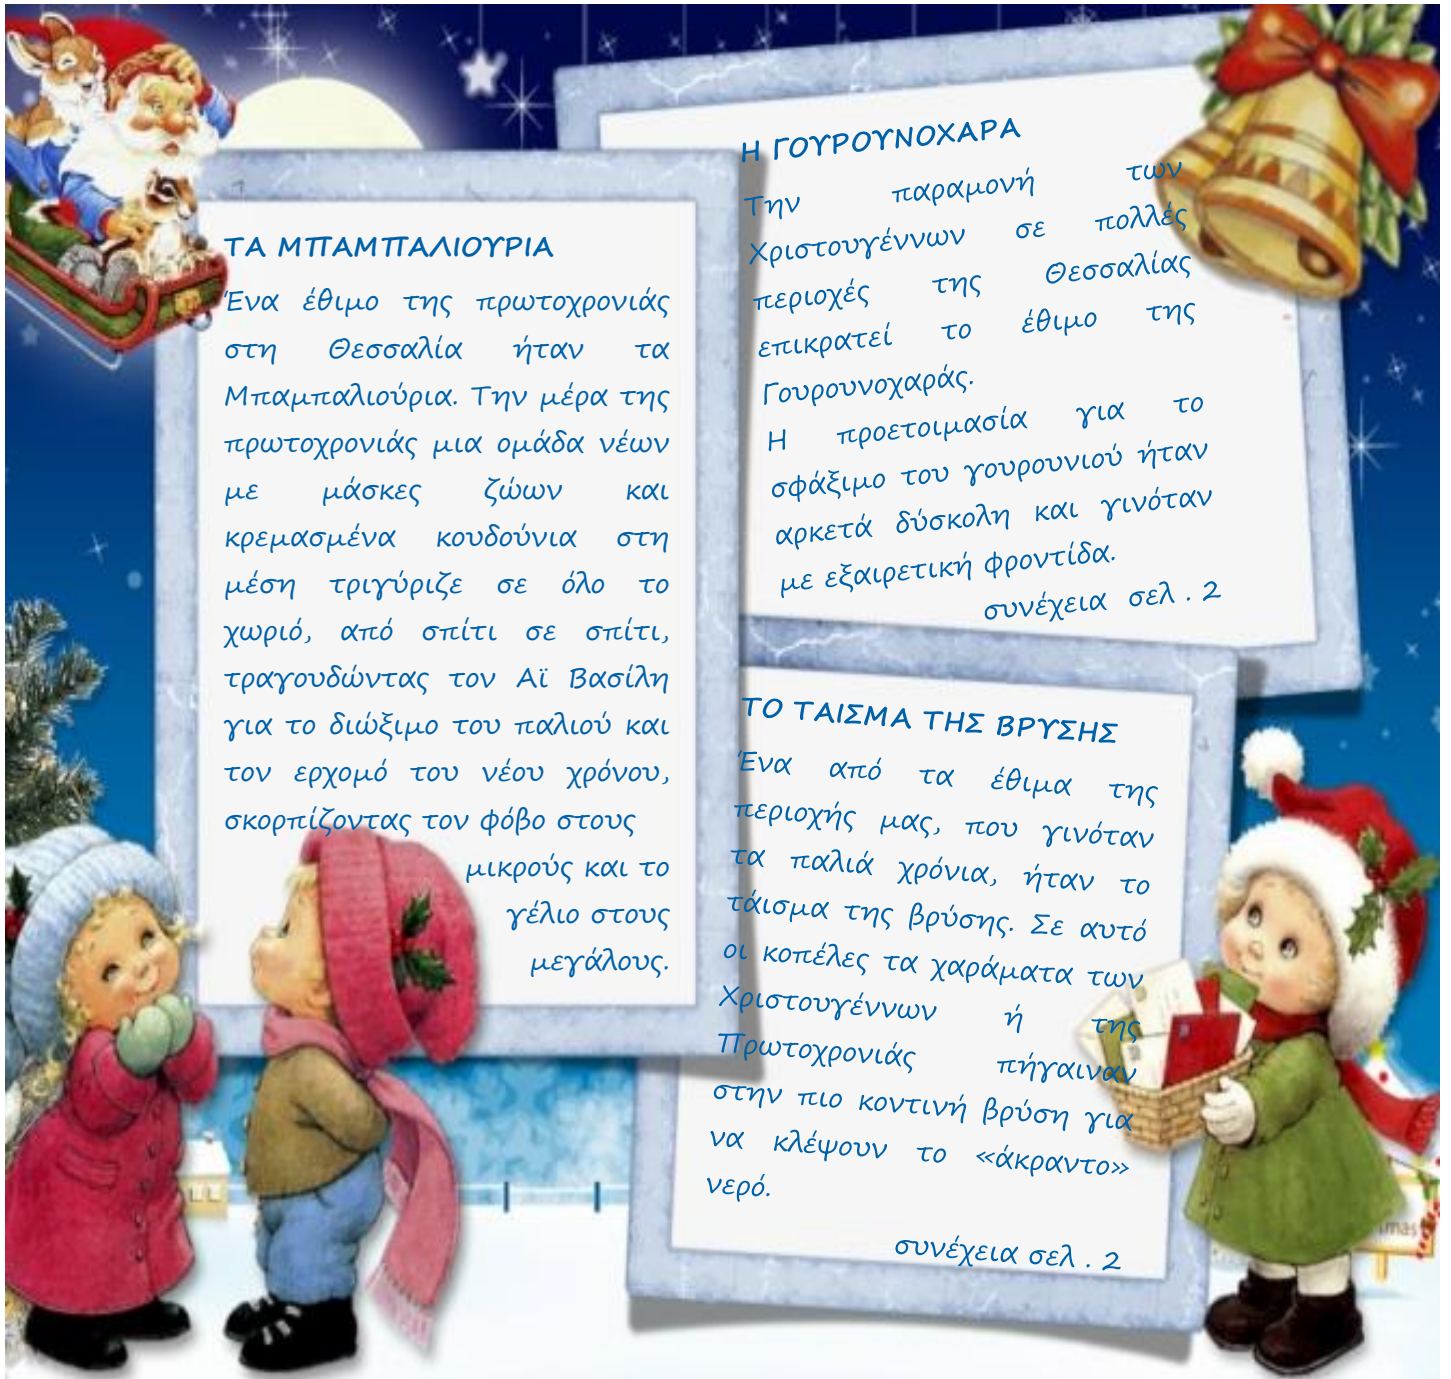 ΤΑ ΜΠΑΜΠΑΛΙΟΥΡΙΑ
Ένα έθιμο της πρωτοχρονιάς
στη Θεσσαλία ήταν τα
Μπαμπαλιούρια. Την μέρα της
πρωτοχρονιάς μια ομάδα νέων
με μάσκες ζώων και
κρεμασμένα κουδούνια στη
μέση τριγύριζε σε όλο το
χωριό, από σπίτι σε σπίτι,
τραγουδώντας τον Αϊ Βασίλη
για το διώξιμο του παλιού και
τον ερχομό του νέου χρόνου,
σκορπίζοντας τον φόβο στους
μικρούς και το
γέλιο στους
μεγάλους.
Η ΓΟΥΡΟΥΝΟΧΑΡΑ
Την παραμονή των
Χριστουγέννων σε πολλές
περιοχές της Θεσσαλίας
επικρατεί το έθιμο της
Γουρουνοχαράς.
Η προετοιμασία για το
σφάξιμο του γουρουνιού ήταν
αρκετά δύσκολη και γινόταν
με εξαιρετική φροντίδα.
συνέχεια σελ . 2
ΤΟ ΤΑΙΣΜΑ ΤΗΣ ΒΡΥΣΗΣ
Ένα από τα έθιμα της
περιοχής μας, που γινόταν
τα παλιά χρόνια, ήταν το
τάισμα της βρύσης. Σε αυτό
οι κοπέλες τα χαράματα των
Χριστουγέννων ή της
Πρωτοχρονιάς πήγαιναν
στην πιο κοντινή βρύση για
να κλέψουν το «άκραντο»
νερό.
συνέχεια σελ . 2